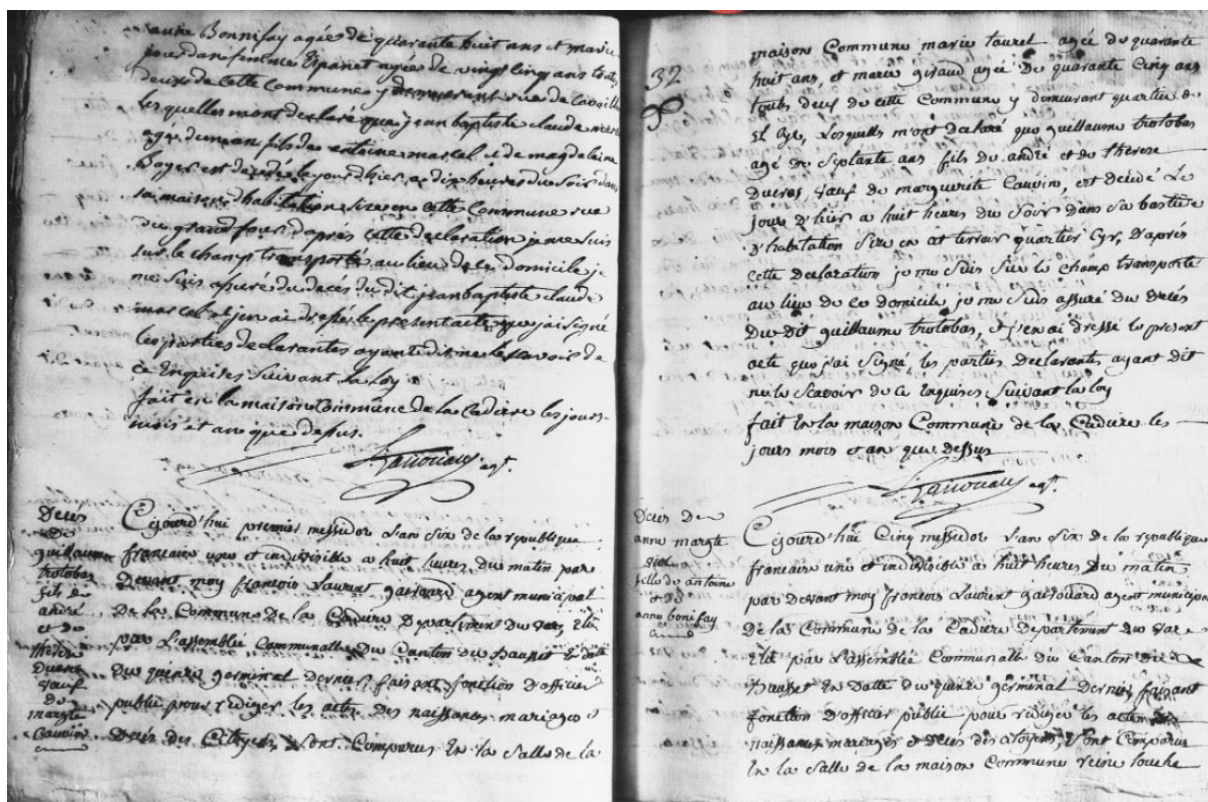 Bonnifay agées de quarante huit ans et marie
jourdan femme Espanet agées de vingt cinq ans tous
deux de cette Commune y demeurant rue de
lesquelles m'ont declaré que jean baptiste claude
agé de un an fils de antoine marcel et de magdelaine
Boyer est decedé le jour d'hier a dix heures du soir dans
sa maison d'habitation size en cette Commune rue
du grand four, d'apres cette declaration je me suis
sur le champ transporté au lieu de ce domicile je
me suis assuré du deces du dit jean baptiste claude
marcel et j'en ai dressé le present acte que j'ai signé
les parties declarantes ayant dit ne le savoir de
ce Enquises suivant la loy
fait en la maison Commune de la Cadiere les jours
mois et an que dessus.
agt.
Decés
de
guillaume
trotobas
fils de
andré
et de
thérèse
Ducros
veuf
de
margte
Cauvin
Cejourd'hui premier messidor l'an six de la republique
francaise une et indivisible a huit heures du matin par
Devant moy francois Laurent gairoard agent municipal
De la Commune de la Cadiere Departement du var, Elu
par L'assemblée Communalle du Canton du Bausset En datte
du quinze germinal dernier, faisant fonction D'officier
public pour rediger les actes Des naissances mariages &
Decés des Citoyens, sont Comparus En la Salle de la
32
maison Commune marie tauret agée de quarante
huit ans, et marie giraud agée De quarante Cinq ans
touts deux de cette Commune y demeurant quartier de
St Cyr, Lesquels m'ont Declaré que guillaume trotobas
agé de Septante ans fils de andré et de therese
Ducros, veuf de marguerite Cauvin, est decedé Le
jour d'hier a huit heures du soir dans sa bastide
d'habitation Size en ce terroir quartier Cyr, D'après
cette Declaration je me suis sur le champ transporté
au lieu de ce domicile je me suis assuré du decés
Du Dit guillaume trotobas, et j'en ai dressé le present
acte que j'ai signé, les parties Declarantes ayant dit
ne le Scavoir de ce Enquises Suivant la loy
fait En la maison Commune de la Cadiere les
jours mois et an que Dessus
agt.
Decés de
anne margte
giol
fille de antoine
et de
anne bonifay
Cejourd'hui Cinq messidor L'an Six de la republique
francaise une et indivisible a huit heures Du matin
par Devant moy francois Laurent gairoard agent municipal
De la Commune de la Cadiere Departement du var
Elu par L'assemblée Communalle du Canton du
Bausset En Datte du quinze germinal Dernier, faisant
fonction D'officier public pour rediger les actes des
naissances mariages et decés des citoyens, sont Comparus
En la Salle de la maison Commune reine louche